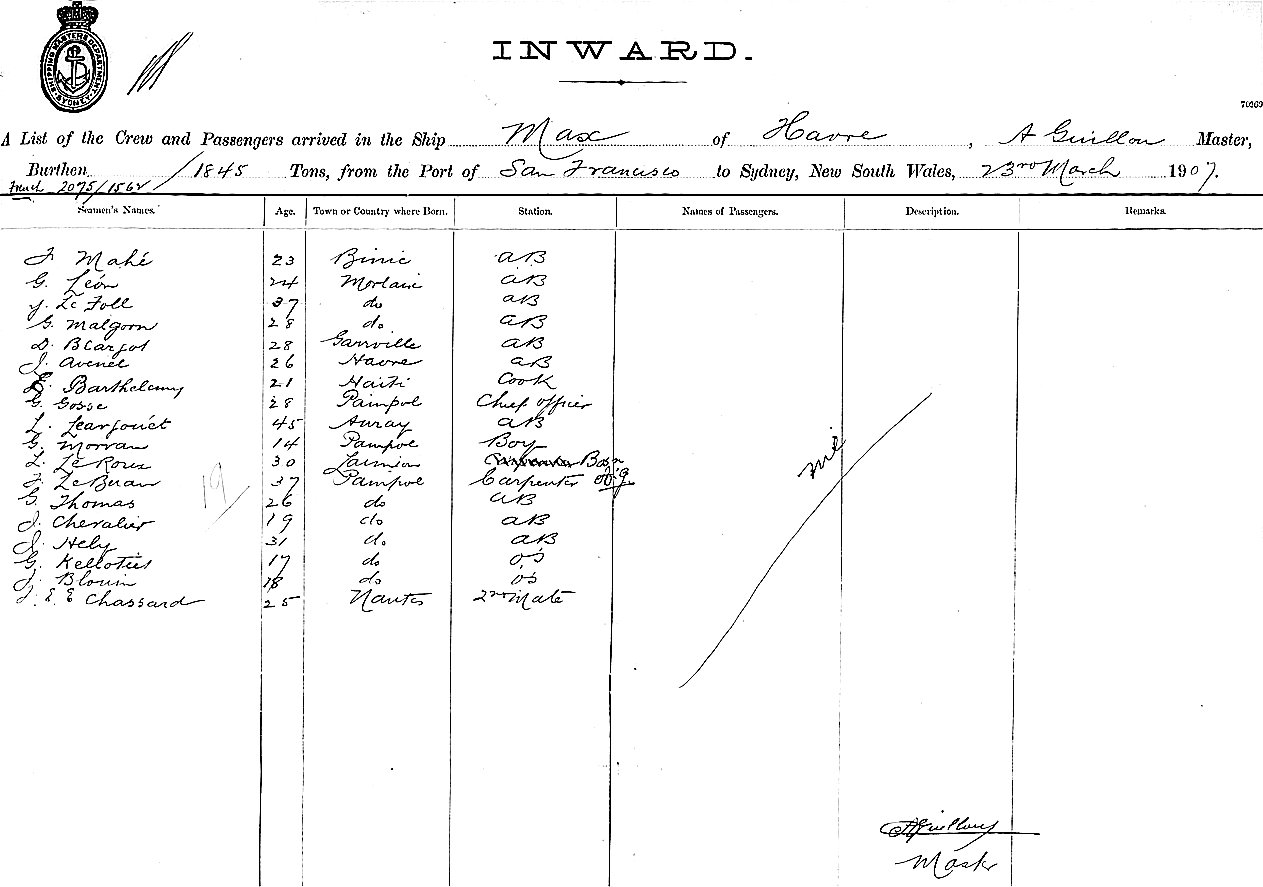 SHIPPING MASTERS DEPARTMENT SYDNEY
INWARD.
70169
A List of the Crew and Passengers arrived in the Ship Max of Havre, A Guillou Master,
Burthen /1845 Tons, from the Port of San Francisco to Sydney, New South Wales, 23rd March 1907.
French 2075/1562
Seamen's Names. Age. Town or Country where Born. Station. Names of Passengers. Description. Remarks.
F Mahé 23 Binic AB
G. Léon 24 Morlaix AB
Y. Le Foll 37 do AB
G. Malgorn 28 do. AB
D. 28 Granville AB
J. Avenel 26 Havre AB
E. Barthelemy 21 Haiti Cook
G. Gosse 28 Paimpol Chief Officer
L. 45 Auray AB
G. Morvan 14 Paimpol Boy
L. Le Roux 30 Lannion Carpenter Bosn
F. Le Buan 37 Paimpol Carpenter
G. Thomas 26 do AB
J. Chevalier 19 do AB
J. Hely 31 do AB
G. 17 do OS
J. Blouin 18 do OS
J. E E Chassard 25 Nantes 2nd Mate
nil
19
AGuillou
Mastr